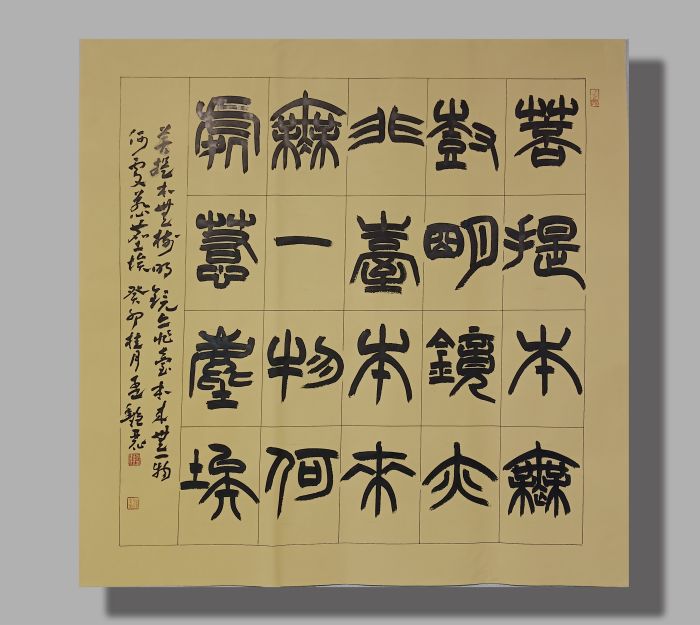 菩提本無
樹明鏡亦
非臺本來
無一物何
處惹塵埃
菩提本無樹明鏡亦非臺本來無一物
何處惹塵埃 癸卯桂月